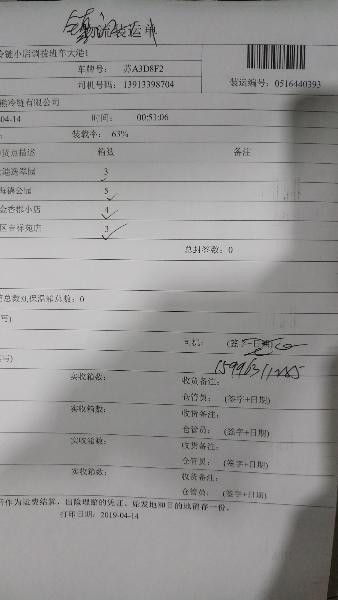 冷链小店调拨班车大港1
车牌号： 苏A3D8F2
司机号码： 13913398704
装运编号：0516440393
冷链有限公司
04-14 时间： 00:51:06
装载率： 63%
货点描述 箱数 备注
3
海德公园 5
金香郡小店 4
区吉祥苑店 3
总封签数：0
总数:0,保温箱总数：0
写)
司机： (签字+日期)
写)
实收箱数： 收货备注：
仓管员： (签字+日期)
实收箱数： 收货备注：
仓管员： (签字+日期)
实收箱数： 收货备注：
仓管员： (签字+日期)
实收箱数： 收货备注：
仓管员： (签字+日期)
作为运费结算、出险理赔的凭证。始发地和目的地留存一份。
打印日期：2019-04-14